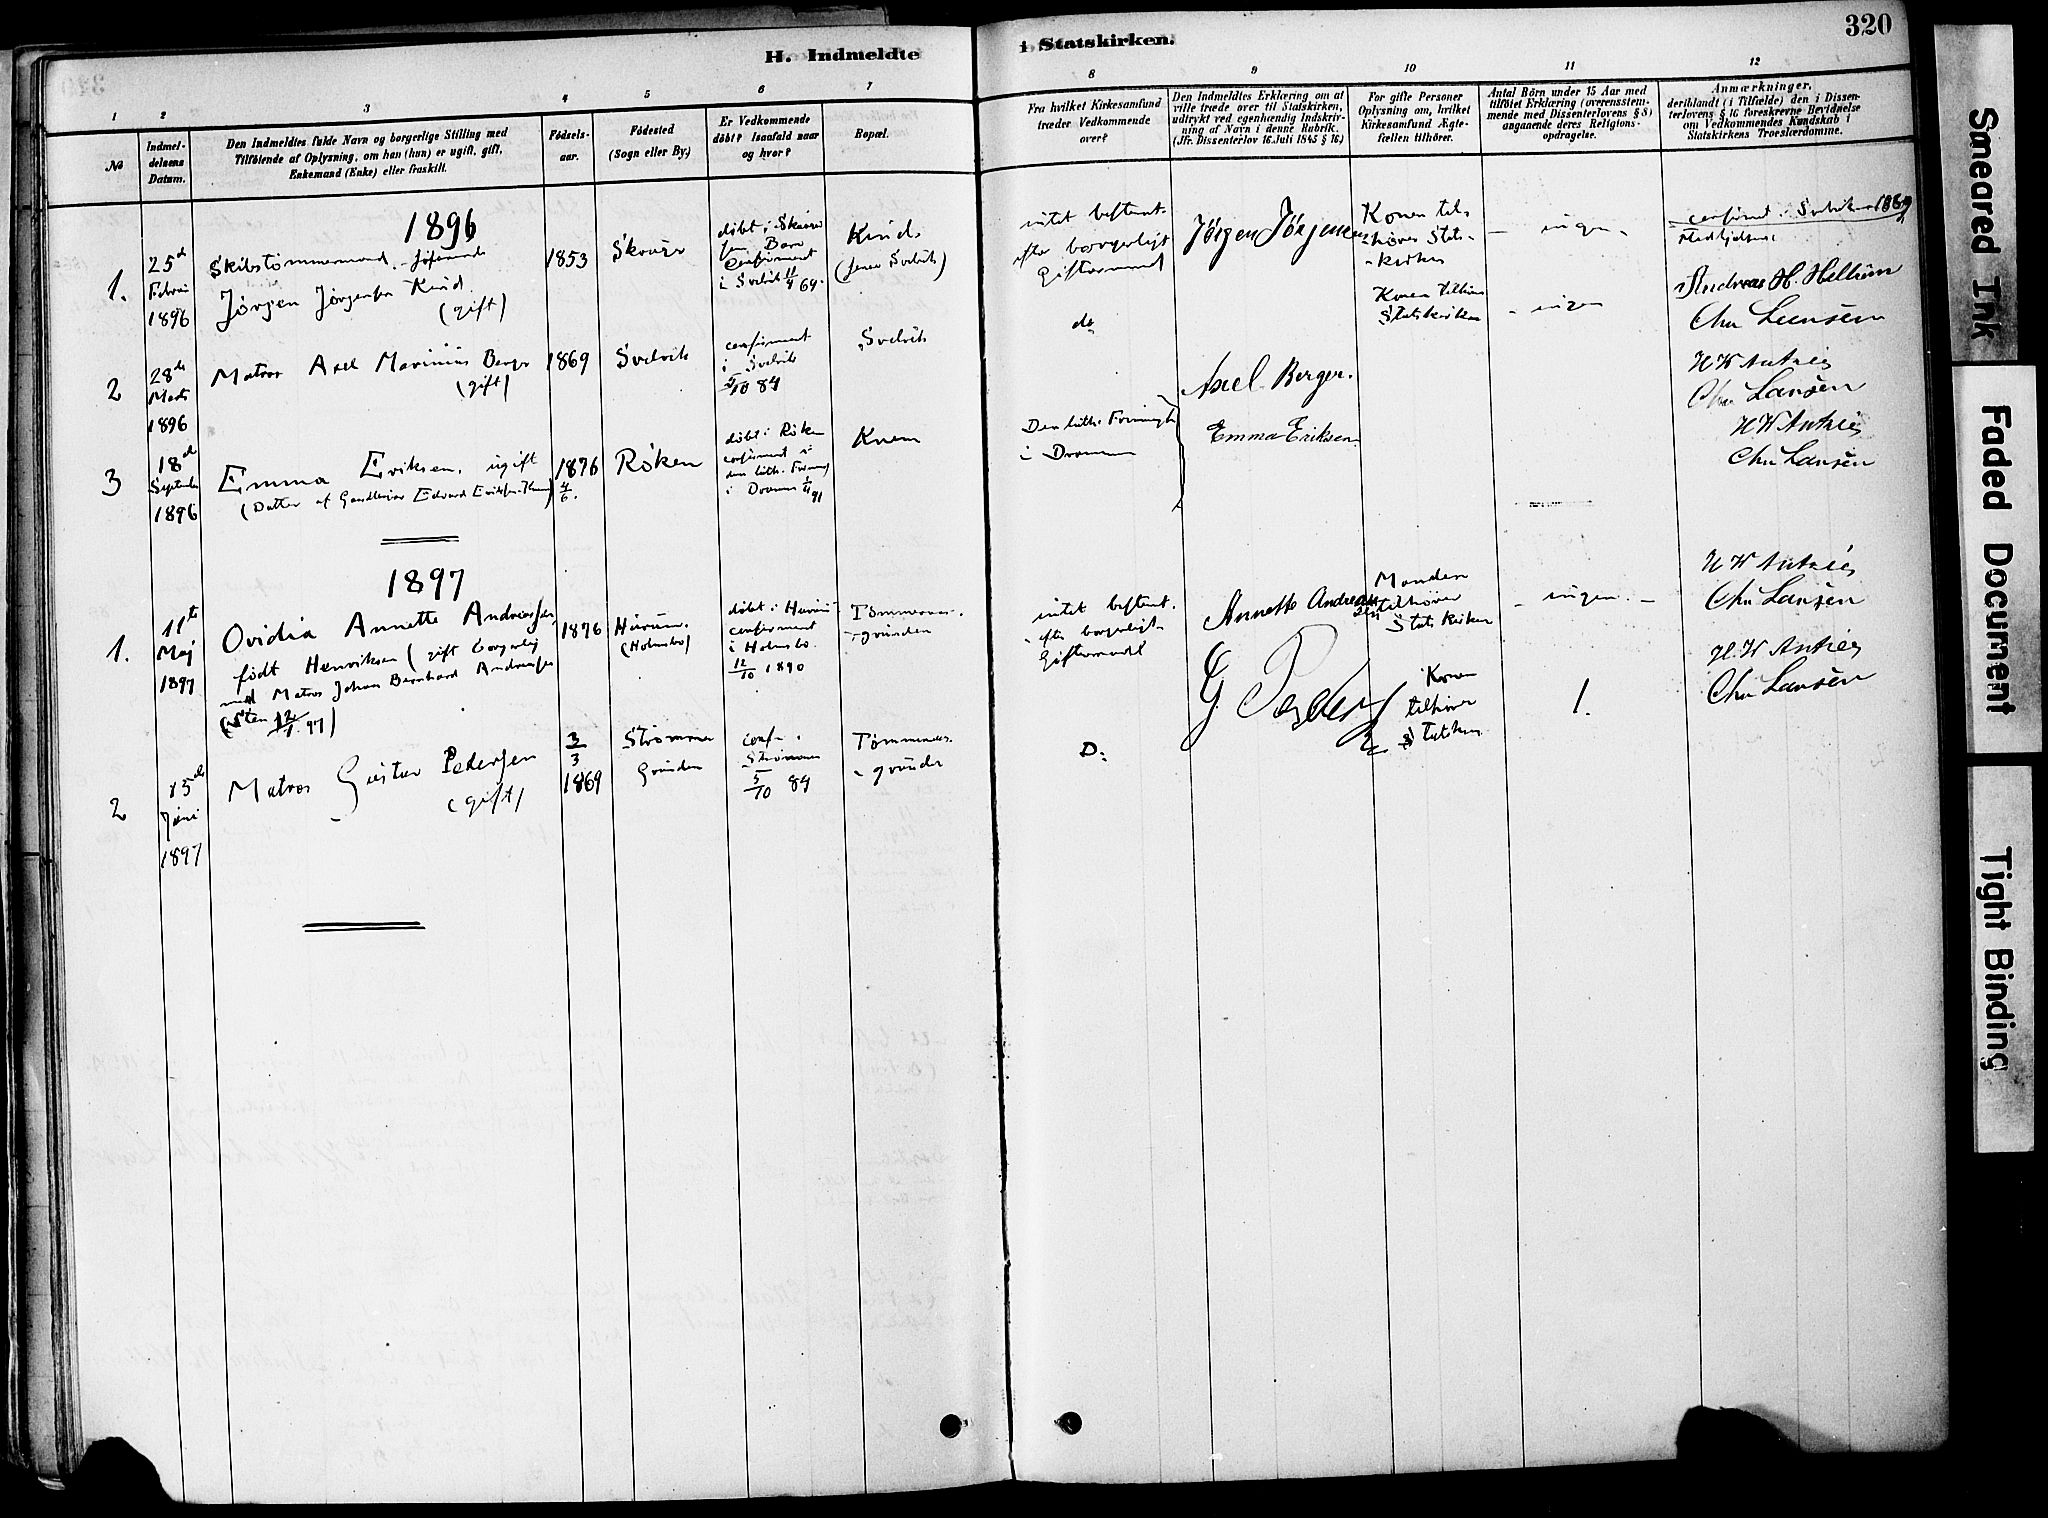 H. Indmeldte
i Statskirken.
320
1
2
3
4
5
6
7
8
9
10
11
12
No
Indmel-
delsens
Datum.
Den Indmeldtes fulde Navn og borgerlige Stilling med
Tilföiende af Oplysning, om han (hun) er ugift, gift,
Enkemand (Enke) eller fraskilt.
Födsels-
aar.
Födested
(Sogn eller By.)
Er Vedkommende
döbt? Isaafald naar
og hvor?
Bopæl.
Fra hvilket Kirkesamfund
træder Vedkommende
over?
Den Indmeldtes Erklæring om at
ville træde over til Statskirken,
udtrykt ved egenhændig Indskriv-
ning af Navn i denne Rubrik.
(Jfr. Dissenterlov 16. Juli 1845 § 16.)
For gifte Personer
Oplysning om, hvilket
Kirkesamfund Ægte-
fællen tilhörer.
Antal Börn under 15 Aar med
tilföiet Erklæring (overensstem-
mende med Dissenterlovens § 8)
angaaende deres Religions-
opdragelse.
Anmærkninger,
deriblandt (i Tilfælde) den i Dissen-
terlovens § 16 foreskrevne Bevidnelse
om Vedkommendes Kundskab i
Statskirkens Troeslærdomme.
1896
1.
25de
Febru
1896
Skibstømmermand
Jørgen Jørgensen Knud
(gift)
1853
döbt i
som Barn
Confirmeret
i Svelvik 11/4 69.
Knud
(Svelvik)
intet bestemt.
efter borgerligt
Giftermaal
Jörgen Jörgensen
Konen til-
hører Stats-
-kirken
- ingen -
confirmt. i Svelvik 1869
Andreas H. Hellum
Chr Lansen
2
28de
Marts
1896
Matros Axel Marinius Berger
(gift)
1869
Svelvik
confirmert
i Svelvik
5/10 84
Svelvik
do
Axel Berger.
Konen tilhører
Statskirken
- ingen
H W Antzée
Chr Lansen
3
18de
September
1896
Emma Eriksen. ugift
(Datter af Gaardbruger Edvard Eriksen)
1876
4/6.
Röken
döbt i Röken
confirmert i
den luth. Frimenigh
i Drammen
Knem
Den luth. Frimenigh
i Drammen
Emma Eriksen
H W Antzée
Chr Lansen
1897
1.
11te
Maj
1897
Ovidia Annette Andreassen
født Henriksen (gift borgerlig
med Matros Johan Bernhard Andreassen
1876
Hurum.
(Holmsbo)
döbt i Hurum
confirmert
i Holmsbo
12/10 1890
Tømmeraas-
-grunden
intet bestemt.
- efter borgerligt
Giftermaal
Annette Andreassen
Manden
tilhører
Statskirken
- ingen -
H W Antzée
Chr Lansen
2
15de
Juni
1897
Matros Gustav Pedersen
(gift)
3/3
1869
Strømm
Grunden
conf. i
Strømmen
5/10 84
Tømmeraas-
-grunden
D:
G Pedersen
Konen
tilhører
Statskirken
1.
H. W Antzée
Chr Lansen
Smeared Ink
Faded Document
Tight Binding